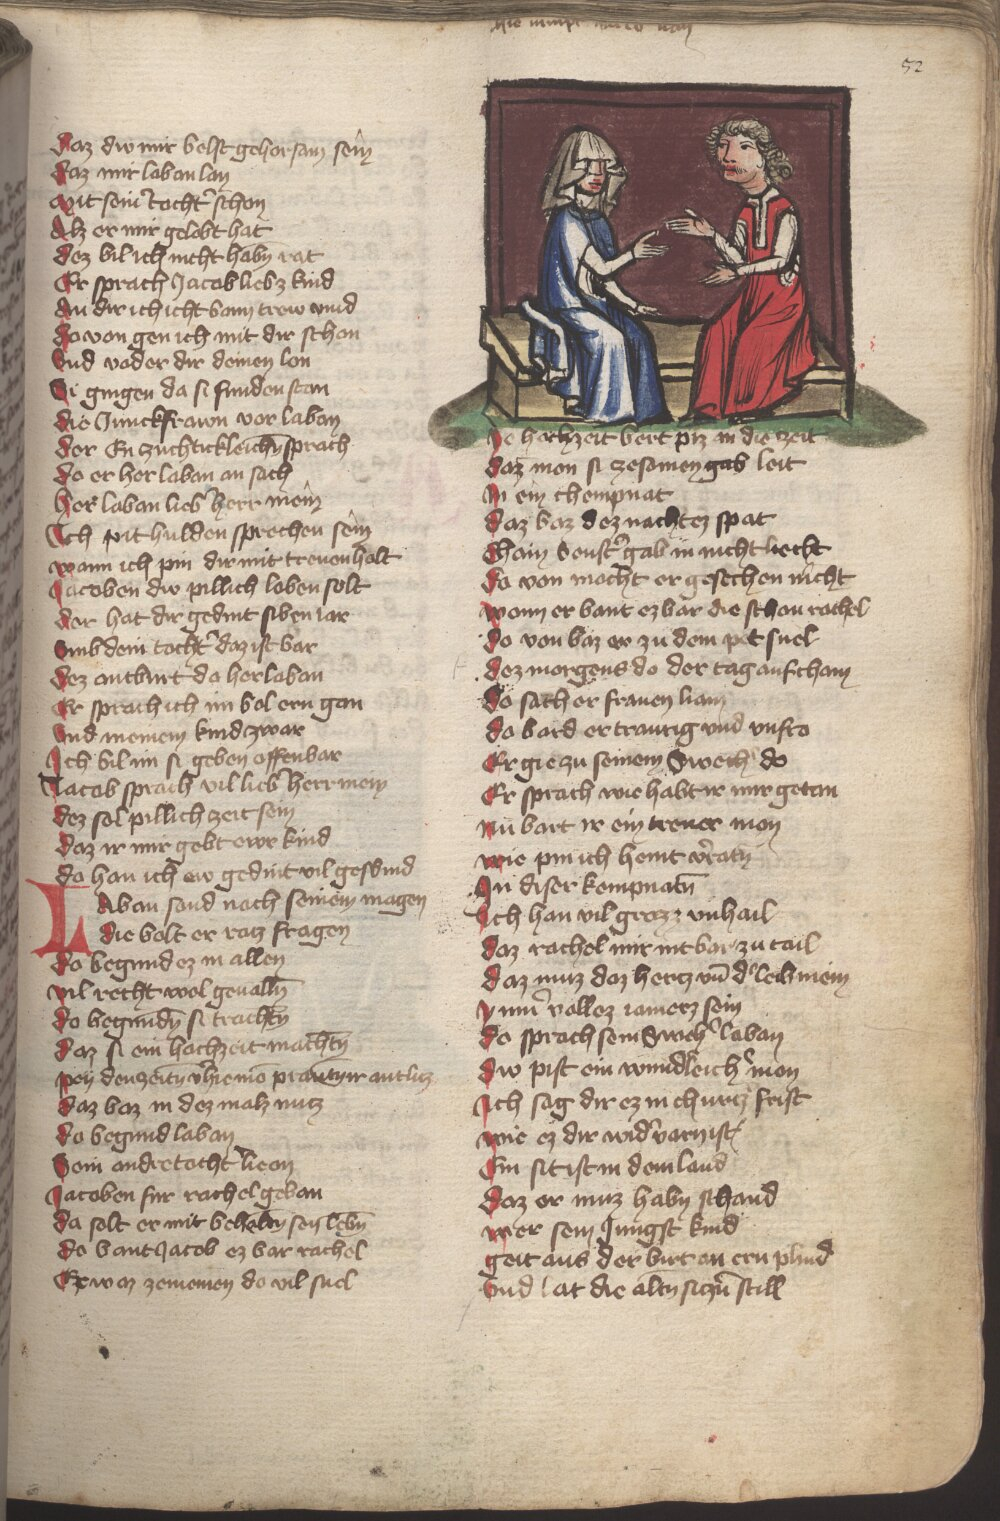 52
Daz dw mir belst gehorsam sein
Daz mir laban lan
Mit seinr tochtr schon
Alz er mir gelobt hat
Dez bil ich nicht habn rat
Er sprach Jacob liebz kind
An dir ich icht bann trew vind
Dovon gen ich mit dir schon
Vnd voder dir deinen lon
Si gingen da si funden stan
Die Junckfrawn vor laban
Der En zuchtickleichn sprach
Do er her laban an sach
Her laban lieb herr mein
Ich pit hulden sprechen sein
wann ich pin dir mit trewen holt
Jacoben dw pillich laben solt
Der hat dir gedint siben iar
Vmb dein tochtr daz ist bar
Dez antburt da her laban
Er sprach ich im bol ern gan
Vnd meinem kind zwar
Ich bil im si geben offenbar
Jacob sprach vil lieb herr mein
Dez sol pillich zeit sein
Daz ir mir gebt ewr kind
Do han ich ew gedint vil gesbind
Laban sand nach seinem magen
die bolt er ratz fragen
Do begund ez in allen
vil recht wol gevalln
Do begundn si trachtn
Daz si ein hachzeit machtn
pey den zeitn
Daz baz in dez malz nutz
Do begund laban
Sein andre tocht lieon
Jacoben fur rachel geban
Da solt er mit behaltn sein lebn
Do bant Jacob ez bar rachel
Er waz zenemen do vil snel
Die hochzeit bert piz an die zeit
Daz mon si zesomen gab leit
In ein chempnat
Daz baz dez nachtez spat
Chain venstr gab in nicht liecht
Da von mocht er gesechen nicht
wonn er bant ez bar die schon rachel
Do von baz er zu dem pet snel
Dez morgens do der tag auf cham
Do sach er frauen liam
Do bard er traurig vnd vnfro
Er gie zu seinem Sweher do
Er sprach wie habt ir mir getan
nu bart ir ein trewer mon
wie pin ich heint verratn
In diser kempnatn
Ich han vil grozz vnhail
Daz rachel mir nit bar zu tail
Daz muz daz hertz vnd der leib mein
ymmr vollez iamerz sein
Do sprach sein Swehr laban
Dw pist ein wundleichr mon
Ich sag dir ez in churtzr frist
wie ez dir widrvarn ist
Ein sit ist in dem land
Daz er muz habn schand
wer sein Jungst kind
geit aus der birt an ern plind
Vnd lat die altn sitzn still